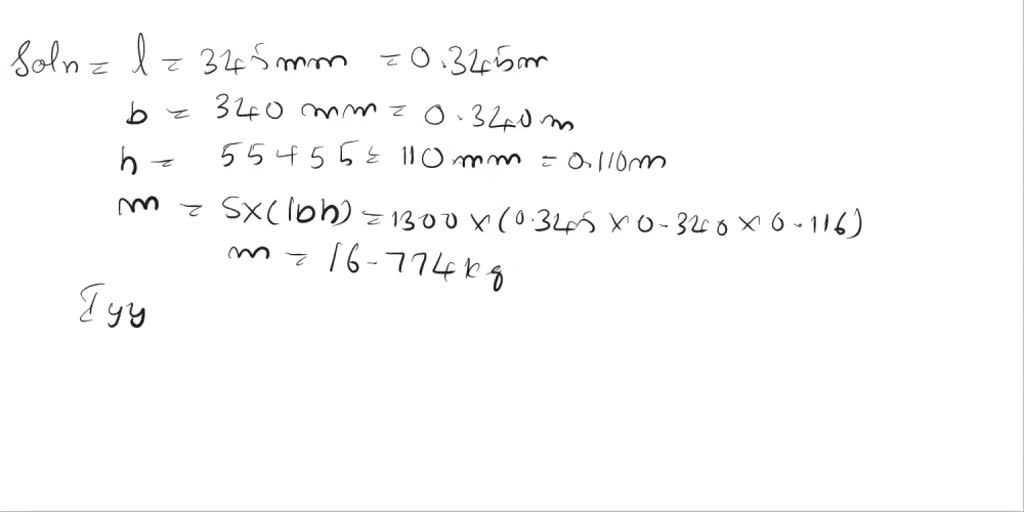 Soln = l = 345mm = 0.345m
b = 340 mm = 0.340m
h = 55+55 = 110mm = 0.110m
m = S×(lbh) = 1300 × (0.345 × 0.340 × 0.116)
m = 16.774kg
Iyy